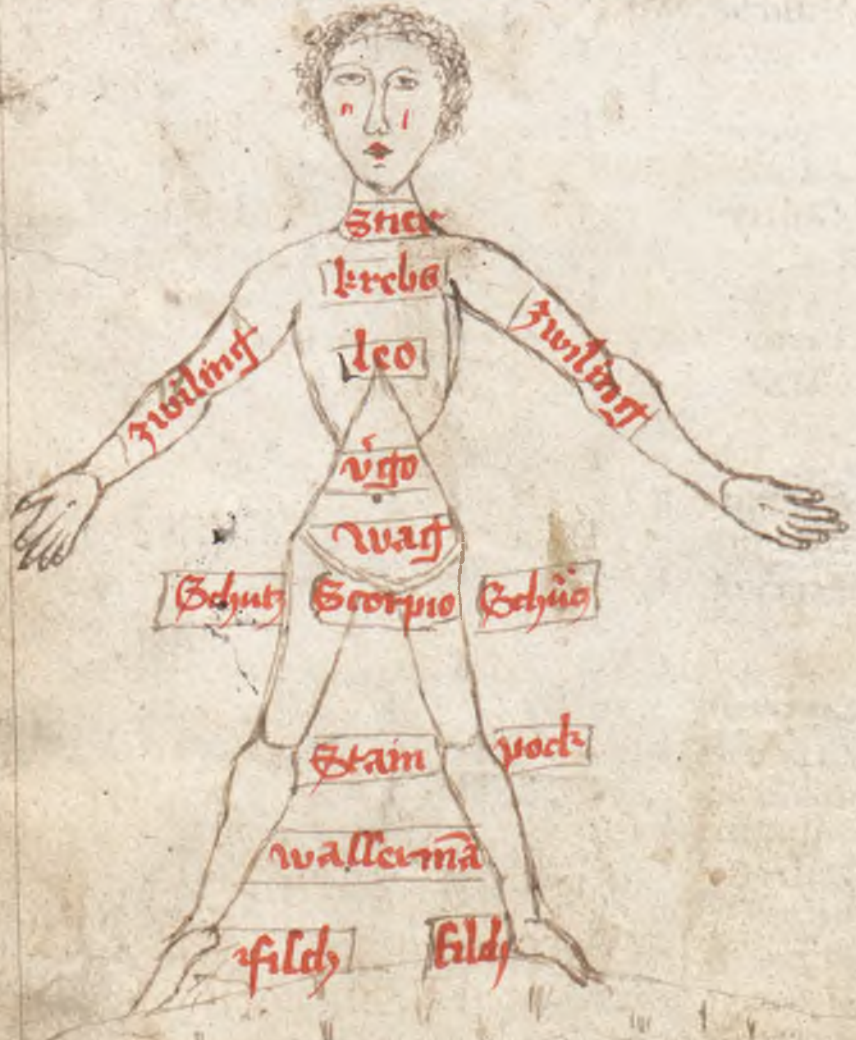 Stier
krebs
leo
zwiling
zwiling
v̓go
wag
Schutz
Scorpio
Schücz
Stain
pock
wasserma̅
fisch
fisch